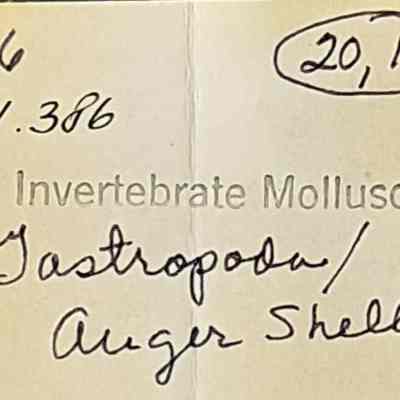 6 20,
.386
Invertebrate Mollusc
Gastropoda/
Auger Shell